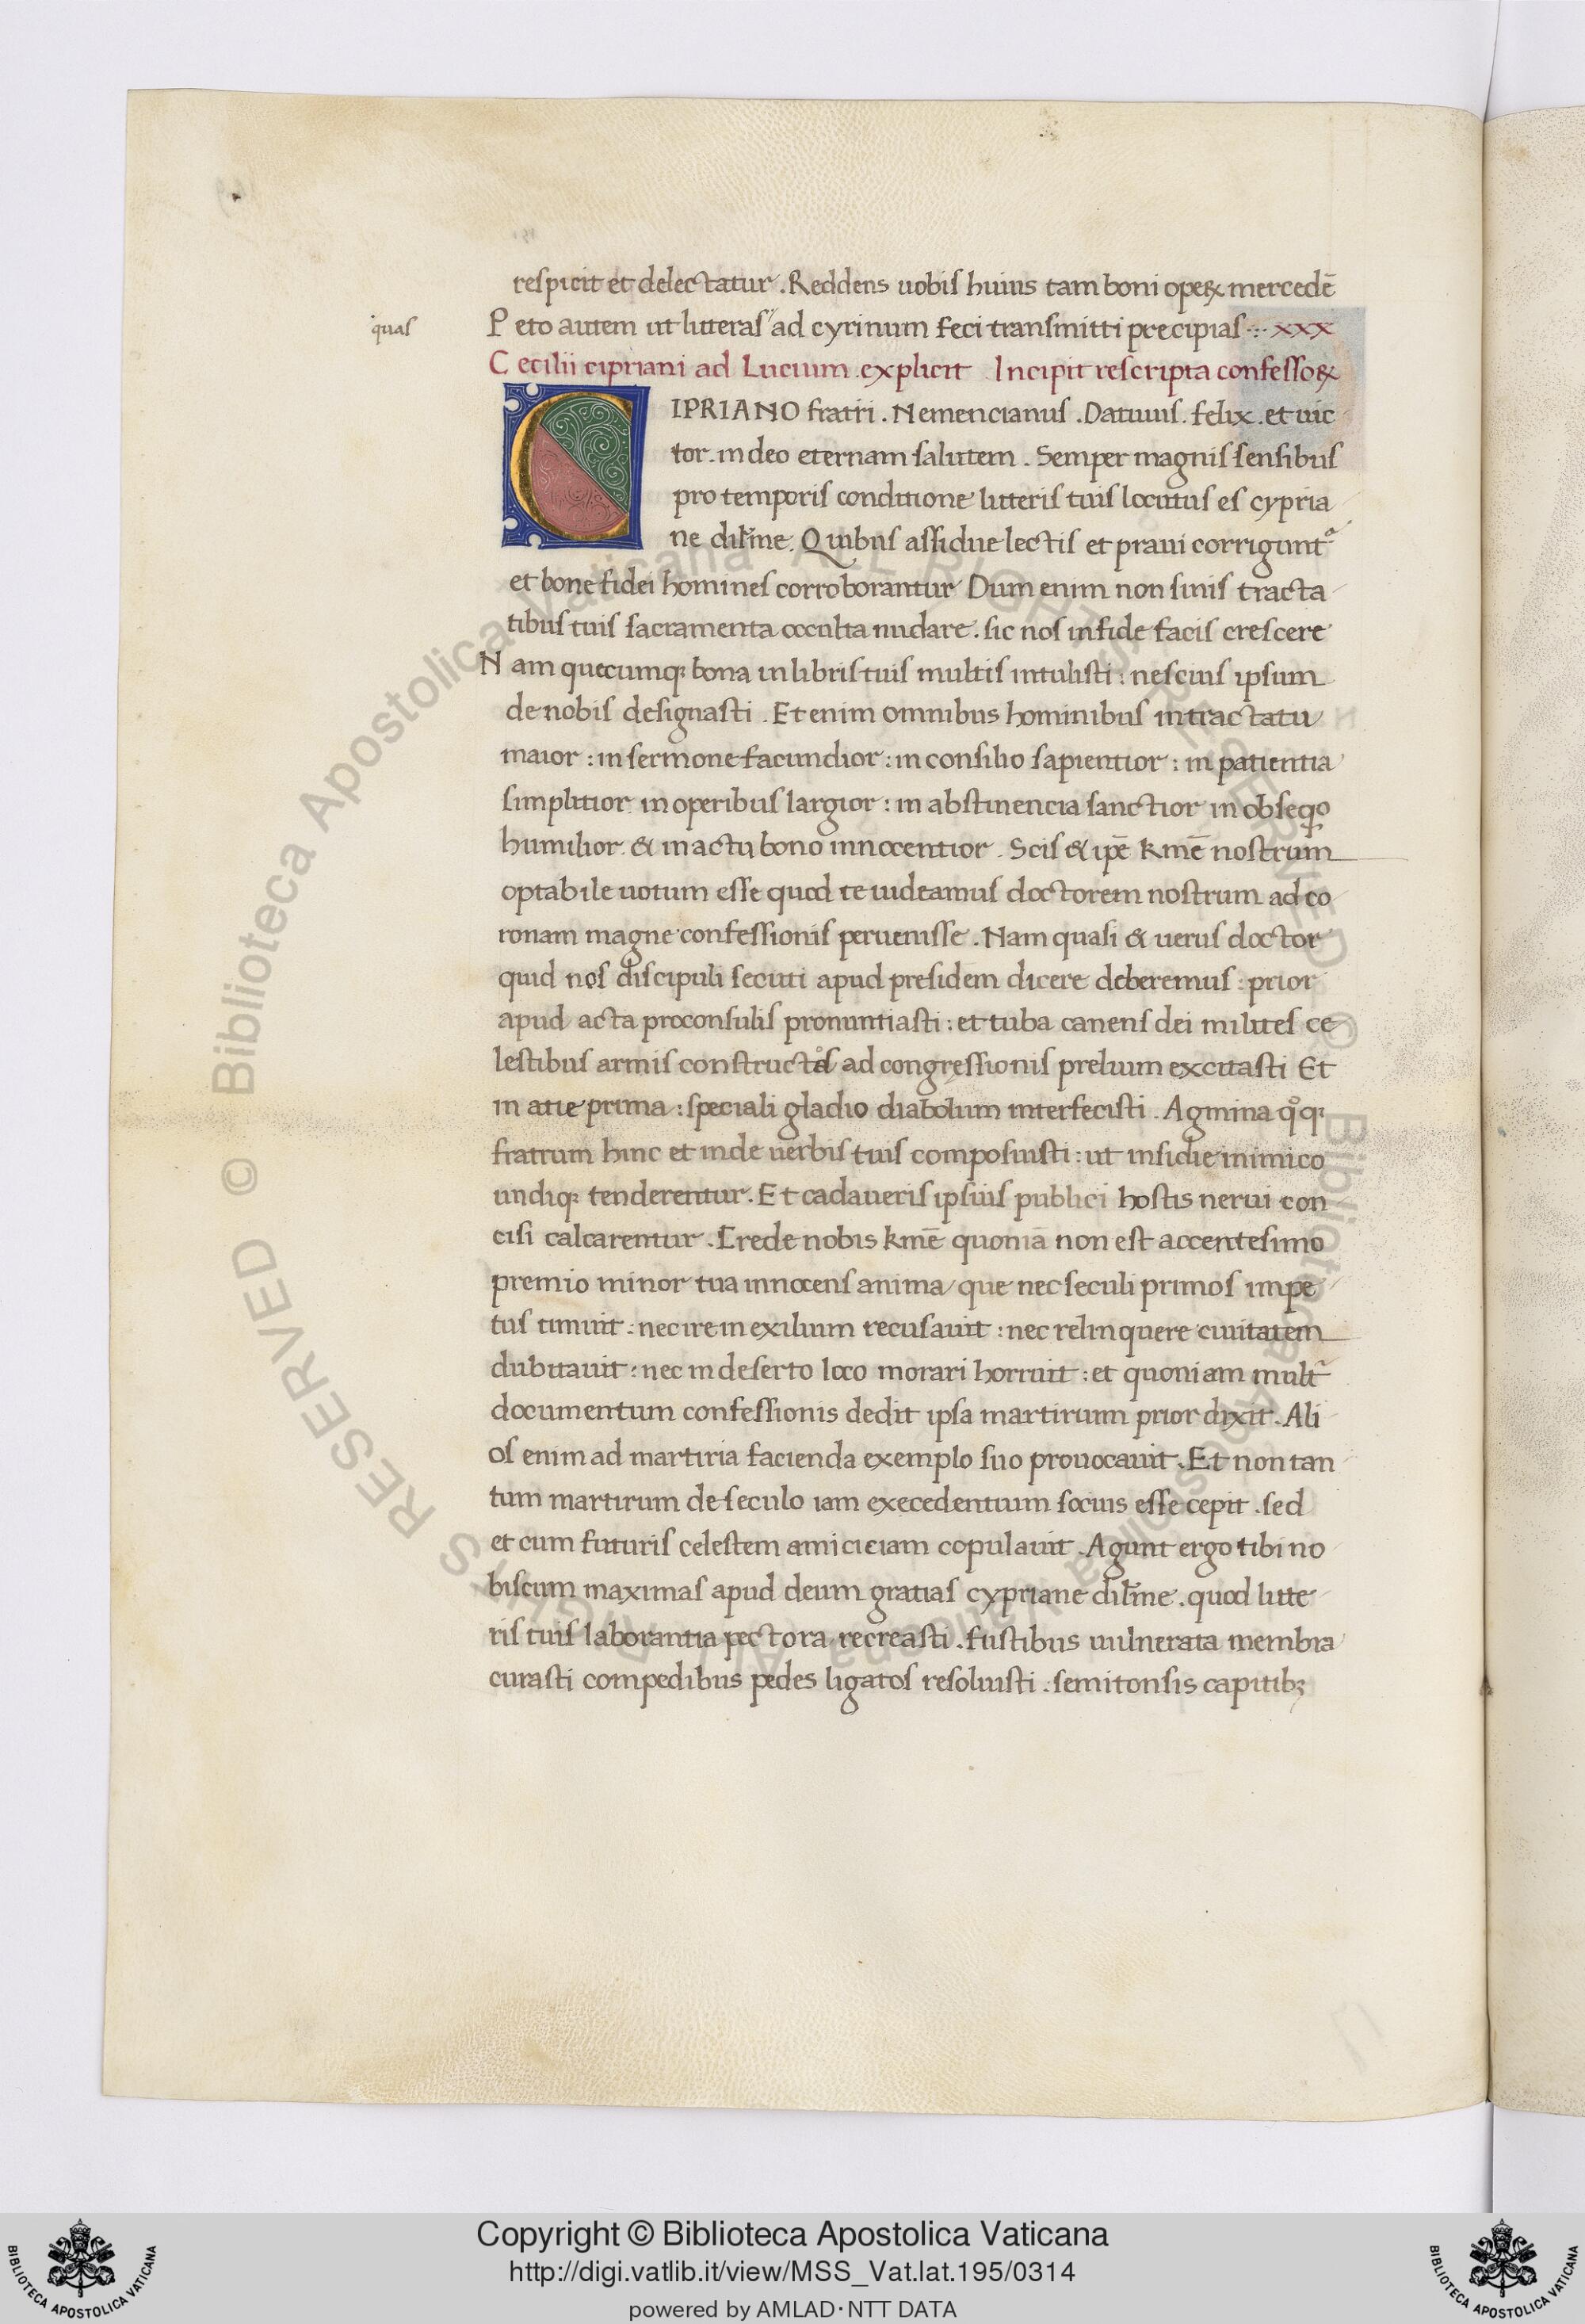 respicit et delectatur. Reddens uobis huius tam boni operꝝ mercedē
quas
Peto autem ut litteras ad cyrinum feci transmitti precipias ∴ xxx
Cecilii cipriani ad Lucium explicit Incipit rescripta confessoꝝ
CIPRIANO fratri. Nemencianus. Datiuus. felix. et uic
tor. in deo eternam salutem. Semper magnis sensibus
pro temporis conditione litteris tuis locutus es cypria
ne dil̄me. Quibus assidue lectis et praui corrigunt᷑
et bone fidei homines corroborantur Dum enim non sinis tracta
tibus tuis sacramenta occulta nudare. sic nos in fide facis crescere
Nam quecumqꝫ bona in libris tuis multis intulisti: nescius ipsum
de nobis designasti. Et enim omnibus hominibus in tractatu
maior: in sermone facundior: in consilio sapientior: in patientia
simplitior in operibus largior: in abstinencia sanctior in obseqͦ
humilior. & in actu bono innocentior. Scis & ip̄e kmē nostrum
optabile uotum esse quod te uideamus doctorem nostrum ad co
ronam magne confessionis peruenisse. Nam quasi & uerus doctor
quid nos discipuli secuti apud presidem dicere deberemus: prior
apud acta proconsulis pronuntiasti: et tuba canens dei milites ce
lestibus armis constructos ad congressionis prelium excitasti Et
in atie prima: speciali gladio diabolum interfecisti. Agmina qͦqꝫ
fratrum hinc et inde uerbis tuis composuisti: ut insidie inimico
undiqꝫ tenderentur. Et cadaueris ipsius publici hostis nerui con
cisi calcarentur. Crede nobis kmē quoniā non est accentesimo
premio minor tua innocens anima que nec seculi primos impe
tus timuit: nec ire in exilium recusauit: nec relinquere ciuitatem
dubitauit: nec in deserto loco morari horruit: et quoniam mult᷑
documentum confessionis dedit ipsa martirium prior dixit. Ali
os enim ad martiria facienda exemplo suo prouocauit. Et non tan
tum martirum de seculo iam execedentium socius esse cepit. sed
et cum futuris celestem amiciciam copulauit. Agunt ergo tibi no
biscum maximas apud deum gratias cypriane dil̄me. quod litte
ris tuis laborantia pectora recreasti. fustibus uulnerata membra
curasti compedibus pedes ligatos resoluisti. semitonsis capitibꝫ
© Biblioteca Apostolica Vaticana ALL RIGHTS RESERVED © Biblioteca Apostolica Vaticana ALL RIGHTS RESERVED
Copyright © Biblioteca Apostolica Vaticana
http://digi.vatlib.it/view/MSS_Vat.lat.195/0314
powered by AMLAD·NTT DATA
BIBLIOTECA APOSTOLICA VATICANA
BIBLIOTECA APOSTOLICA VATICANA